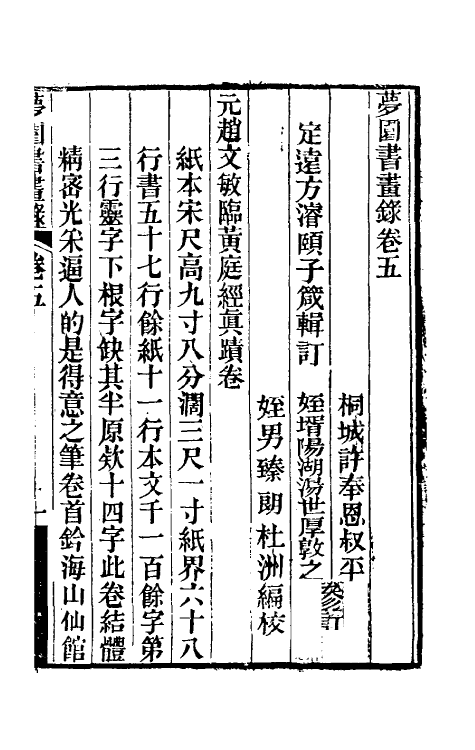 夢園書畫錄卷五
桐城許奉恩叔平
定遠方濬頤子箴輯訂 姪壻陽湖湯世厚敦之 參訂
姪男臻朗杜洲編校
元趙文敏臨黃庭經眞蹟卷
紙本宋尺高九寸八分濶三尺一寸紙界六十八
行書五十七行餘紙十一行本文千一百餘字第
三行靈字下根字缺其半原欵十四字此卷結體
精密光采逼人的是得意之筆卷首鈐海山仙館
夢園書畫錄 卷五